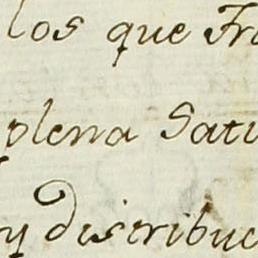 los que Fra
plena Satis
y distribuc